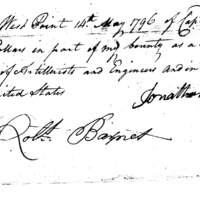 West Point 14th May 1796 of Cap
Dollars in part of my bounty as a
of Artillerists and Engineers and in
nited States
Jonathan
Robt. Barnet